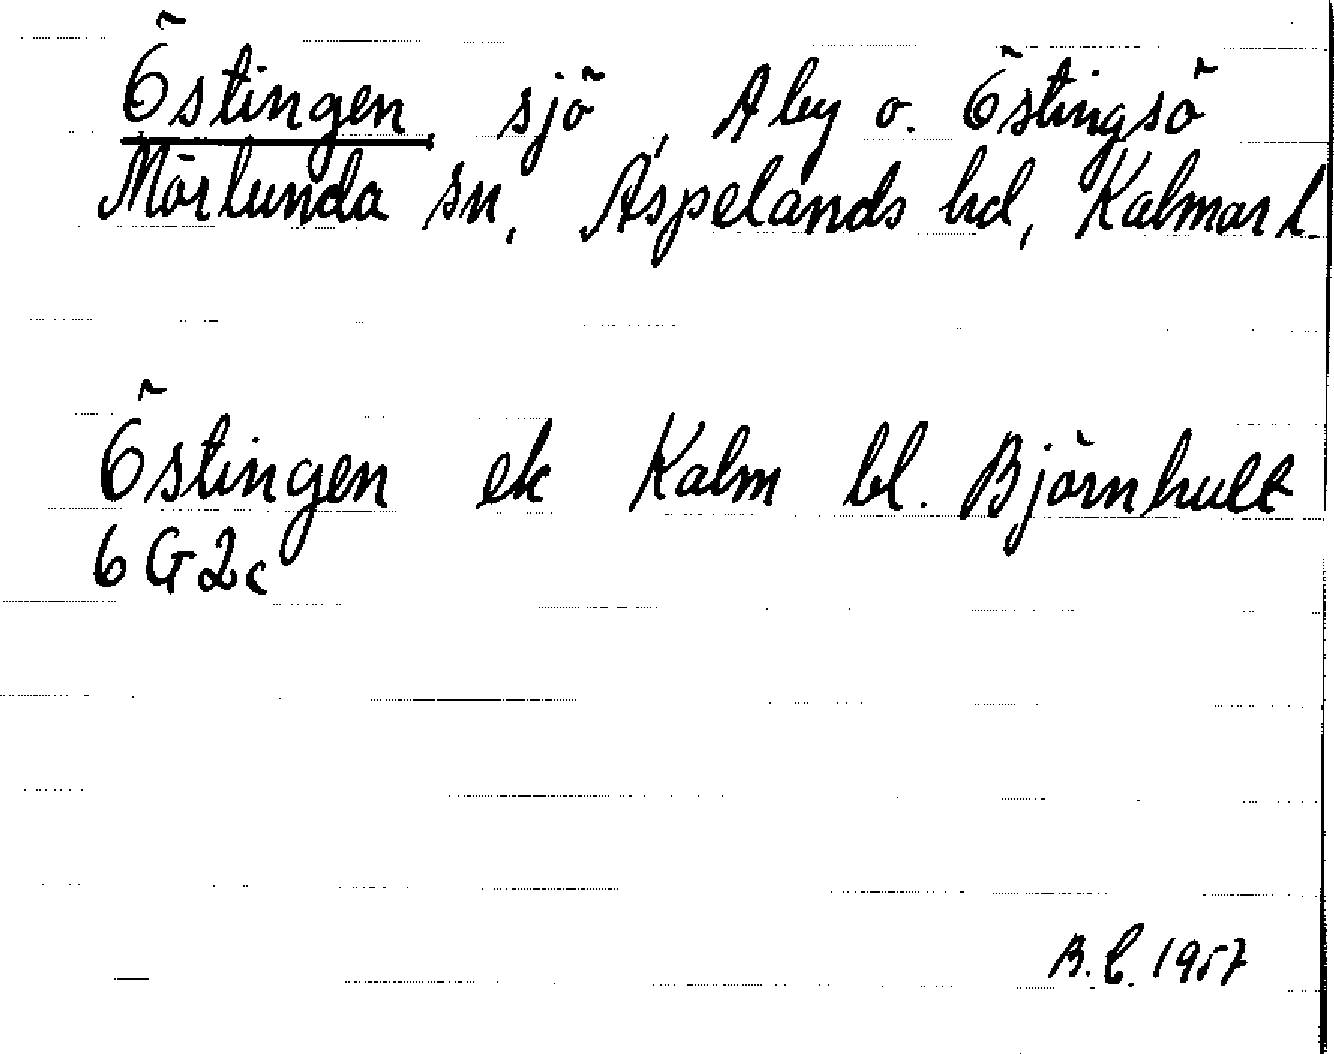 Östingen, sjö, Aby o. Östingsö
Mörlunda sn, Aspelands hd, Kalmar l.
Östingen ek Kalm bl. Björnhult
6 G2c
B.C. 1957